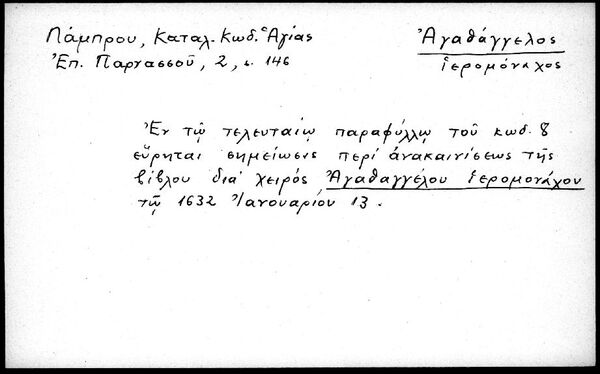 Λάμπρου, Καταλ. Κωδ. Ἁγίας
Ἐπ. Παρνασσοῦ, 2, σ. 146
Ἀγαθάγγελος
ἱερομόναχος
Ἐν τῷ τελευταίῳ παραφύλλῳ τοῦ κωδ. 8
εὕρηται σημείωσις περί ἀνακαινίσεως τῆς
βίβλου διά χειρός Ἀγαθαγγέλου ἱερομονάχου
τῷ 1632 Ἰανουαρίου 13.